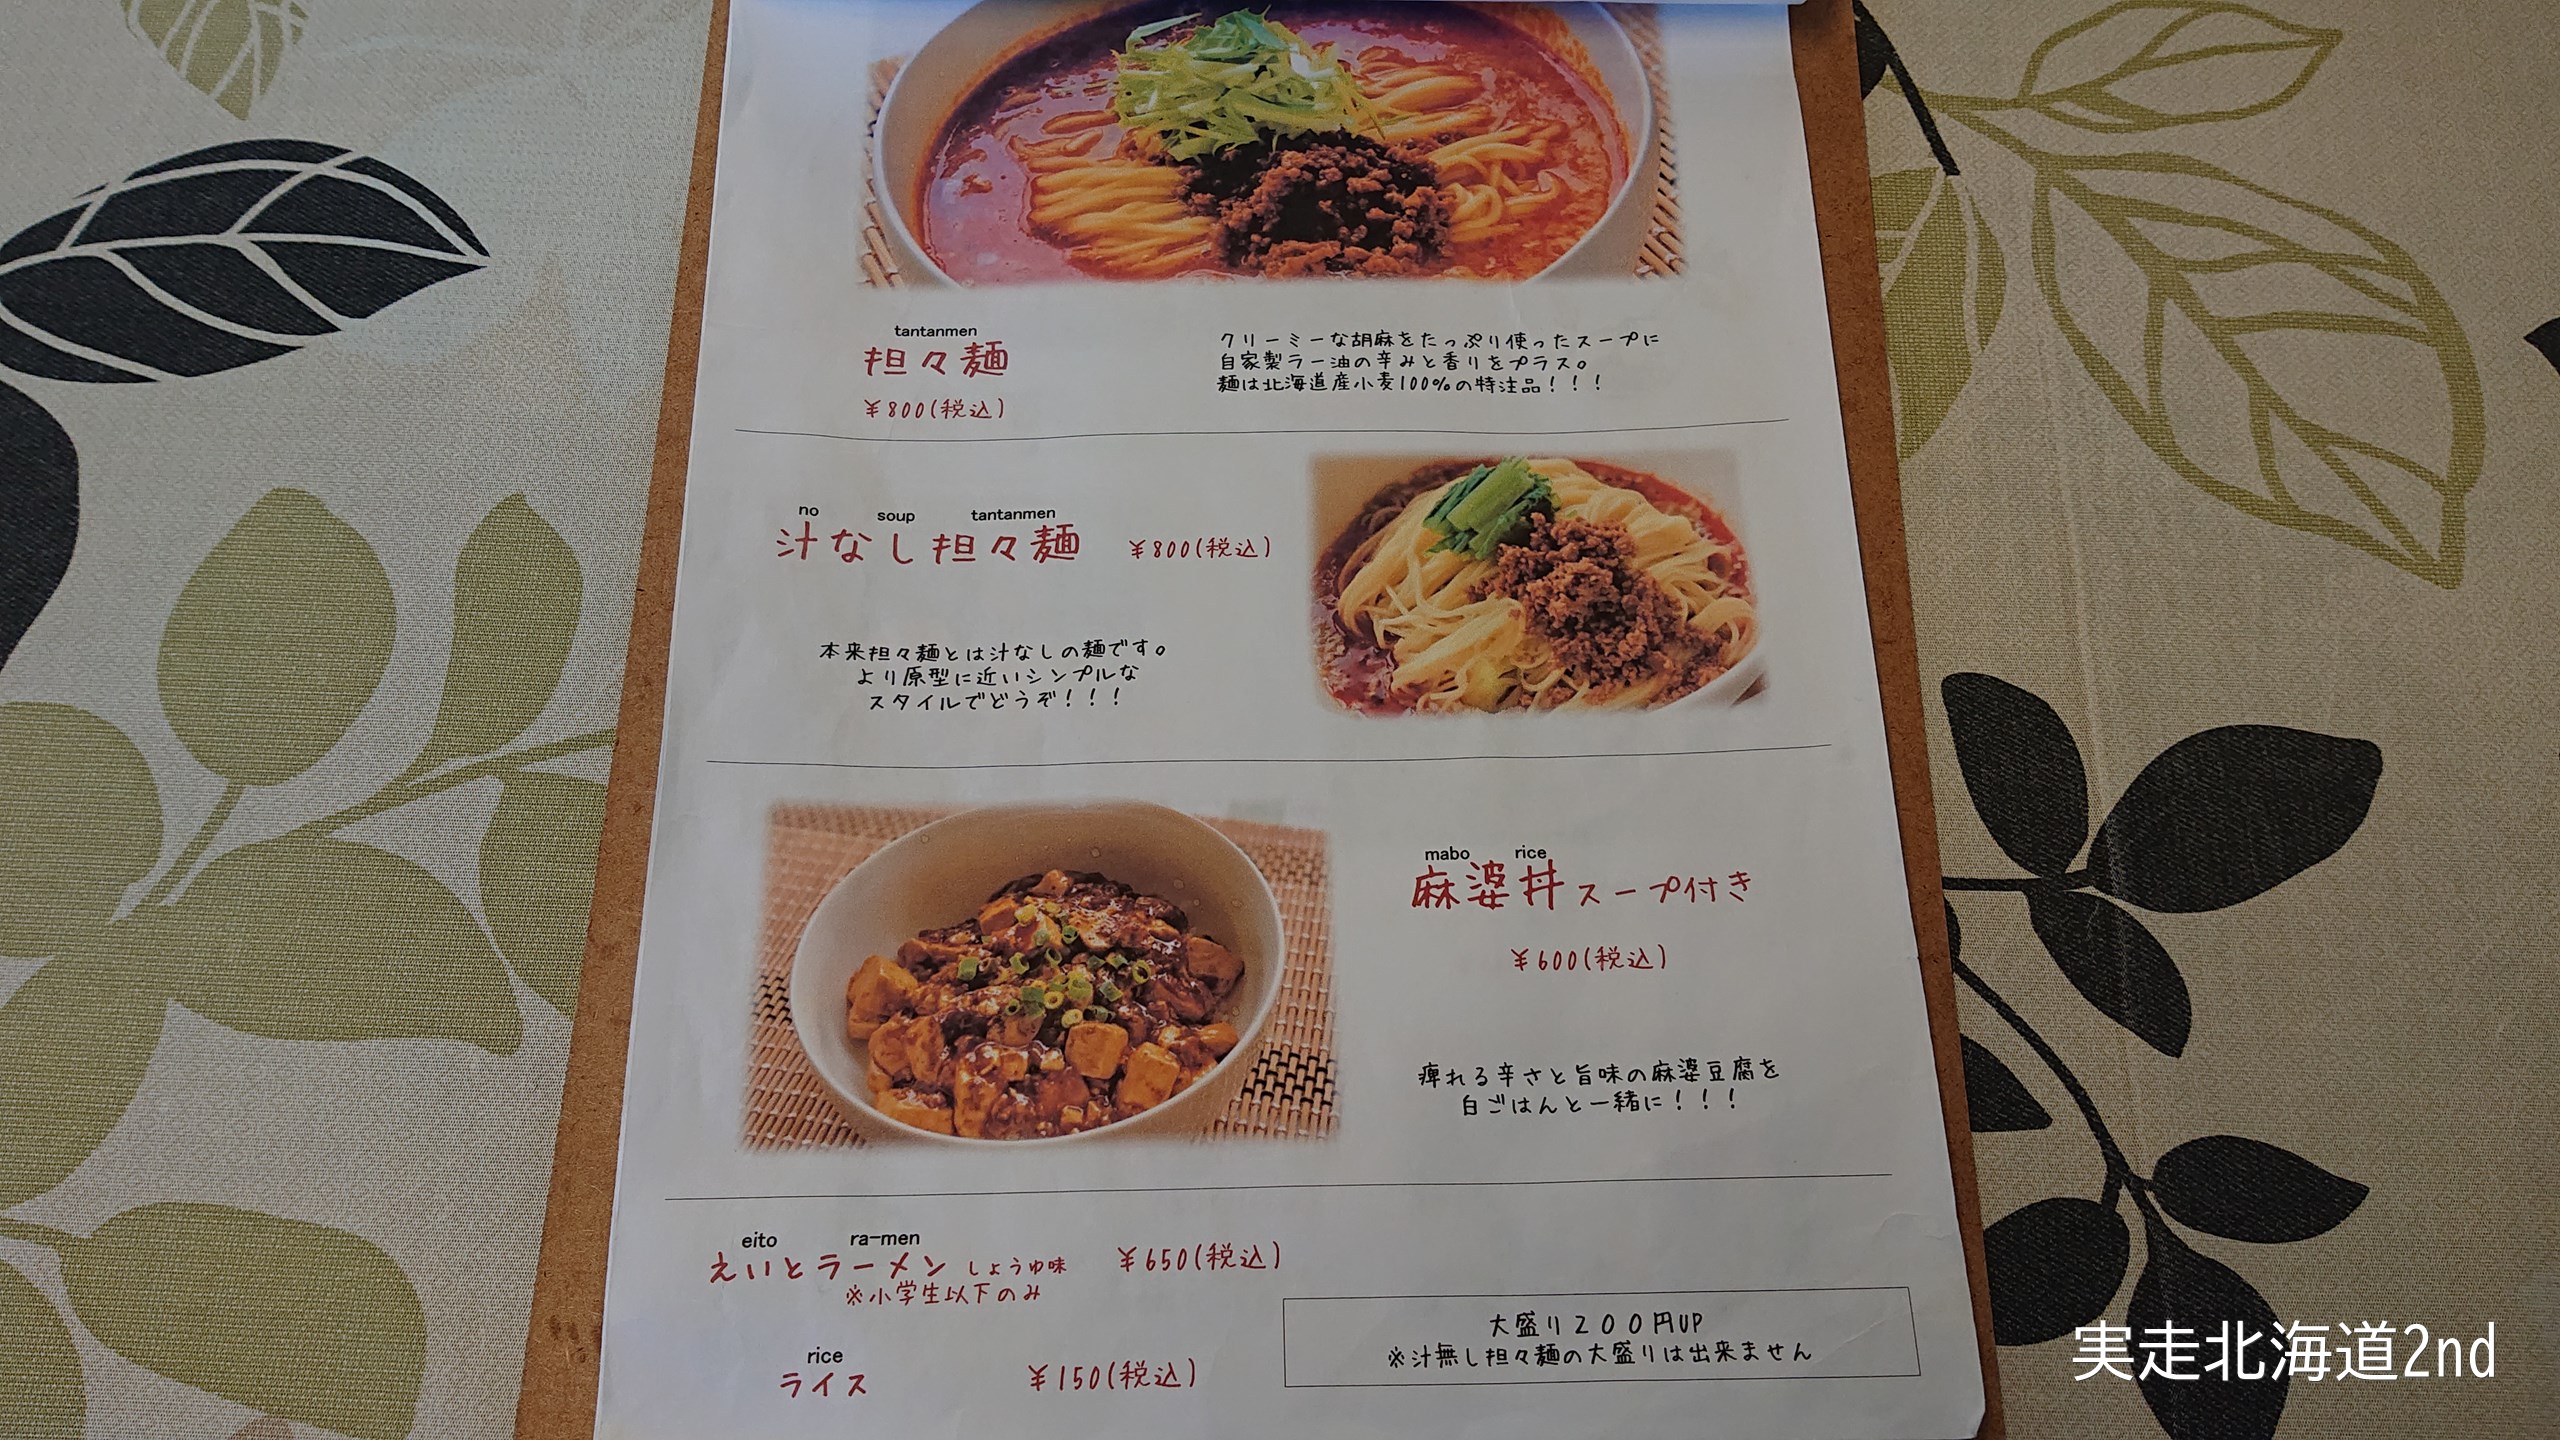 tantanmen
担々麺
¥800(税込)
クリーミーな胡麻をたっぷり使ったスープに
自家製ラー油の辛みと香りをプラス。
麺は北海道産小麦100%の特注品!!!
no soup tantanmen
汁なし担々麺 ¥800(税込)
本来担々麺とは汁なしの麺です。
より原型に近いシンプルな
スタイルでどうぞ!!!
mabo rice
麻婆丼スープ付き
¥600(税込)
痺れる辛さと旨味の麻婆豆腐を
白ごはんと一緒に!!!
eito ra-men
えいとラーメン しょうゆ味 ¥650(税込)
※小学生以下のみ
rice
ライス ¥150(税込)
大盛り200円UP
※汁無し担々麺の大盛りは出来ません
実走北海道2nd